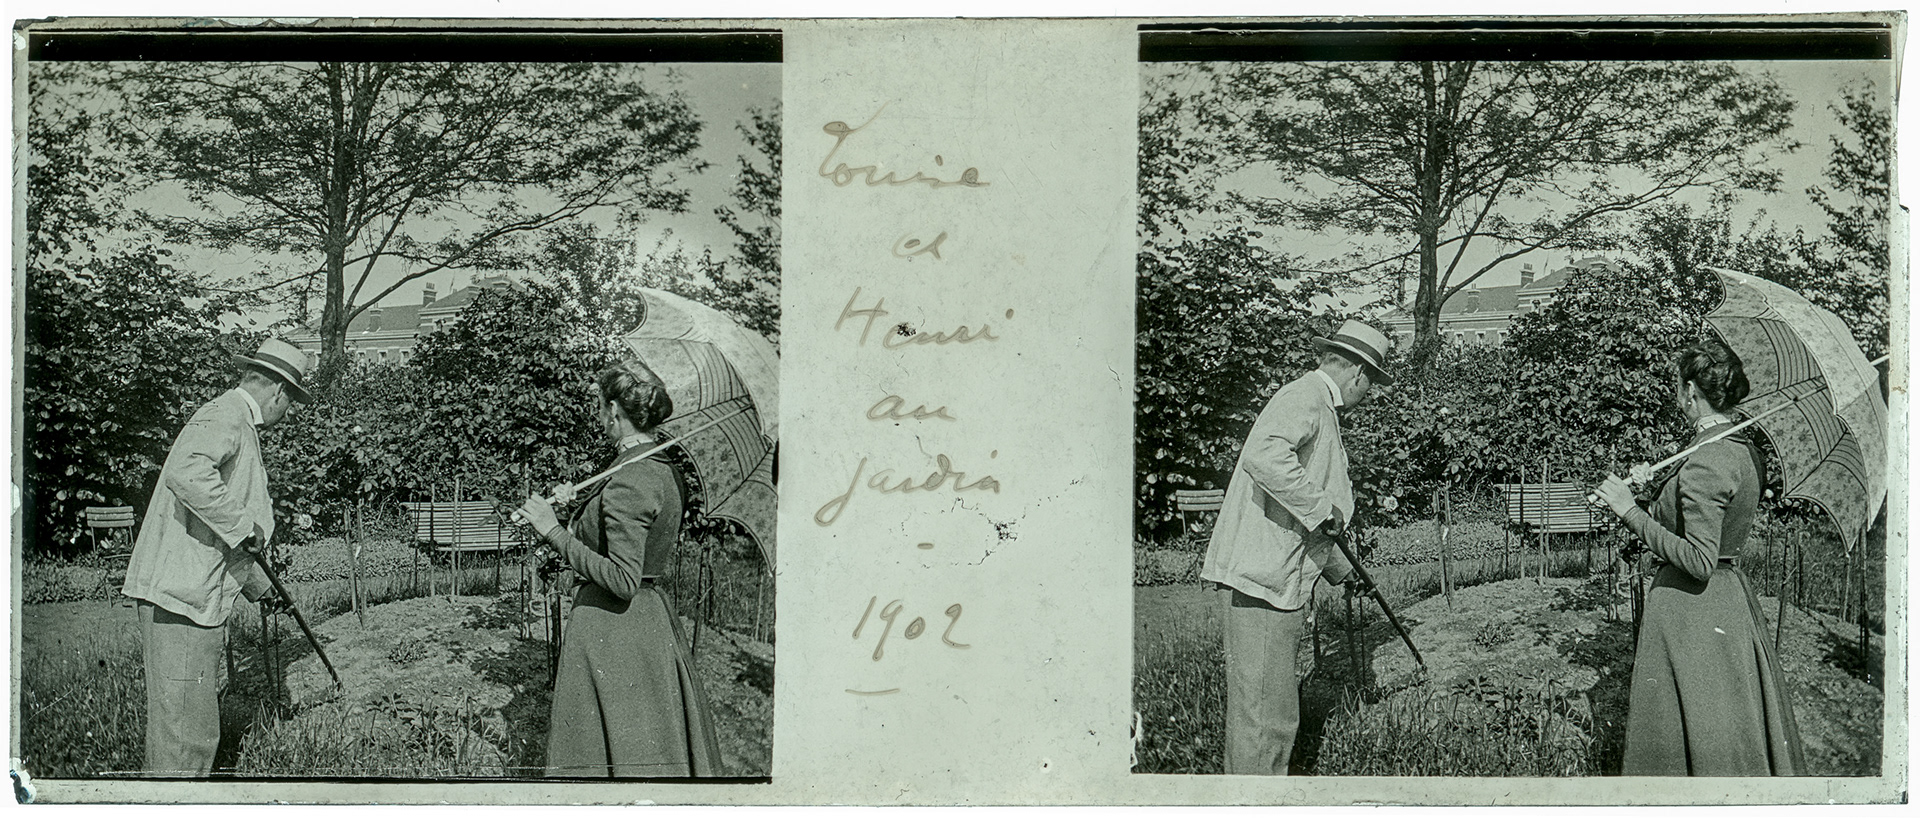 Louise
et
Henri
au
jardin
-
1902